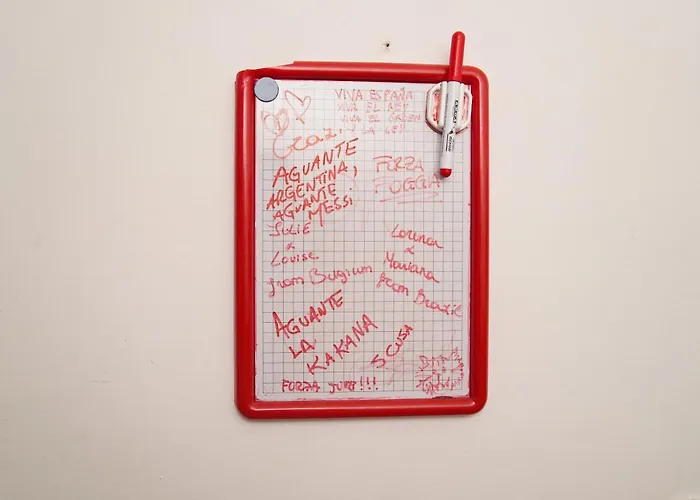 VIVA ESPAÑA
VIVA EL REY
VIVA EL ORDEN
Y LA LEY.
Graz.
AGUANTE
ARGENTINA,
AGUANTE
MESSI
FORZA
FOGGIA
JULIE
&
Louise
from Belgium
Lorena
&
Mariana
from Brazil
AGUANTE
LA
KAKANA
SCUSA
FORZA JUVE!!!